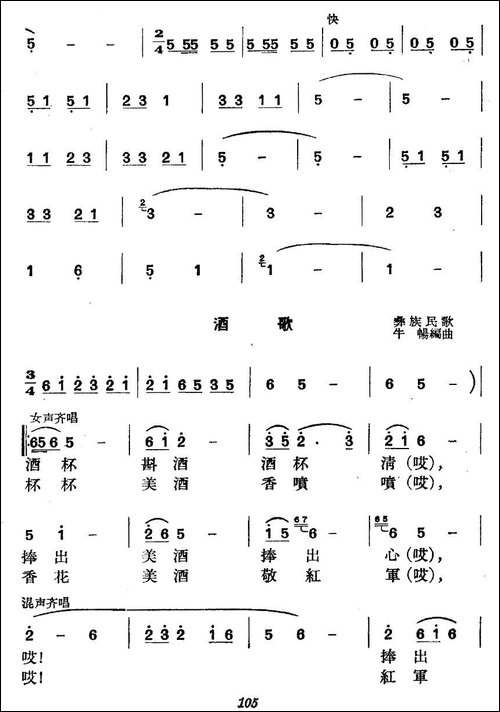 快
5 - - 2/4 5 55 5 5 5 55 5 5 0 5 0 5 0 5 0 5
5 1 5 1 2 3 1 3 3 1 1 5 - 5 -
1 1 2 3 3 3 2 1 5 - 5 - 5 1 5 1
3 3 2 1 2 3 - 3 - 2 3
1 6 5 1 2 1 - 1 -
酒 歌
彝族民歌
牛暢編曲
3/4 6 1 2 3 2 1 2 1 6 5 3 5 6 5 - 6 5 - )
女声齐唱
65 6 5 - 6 1 2 - 3 5 2 . 3 2 1 6 -
酒 杯 斟 酒 酒 杯 清 (哎),
杯 杯 美 酒 香 噴 噴 (哎),
5 1 - 2 6 5 - 1 5 67 6 - 65 6 5 -
捧 出 美 酒 捧 出 心 (哎),
香 花 美 酒 敬 紅 軍 (哎),
混声齐唱
2 - 6 2 3 2 1 6 5 6 - 2 6 1 6
哎! 捧 出
哎! 紅 軍
105